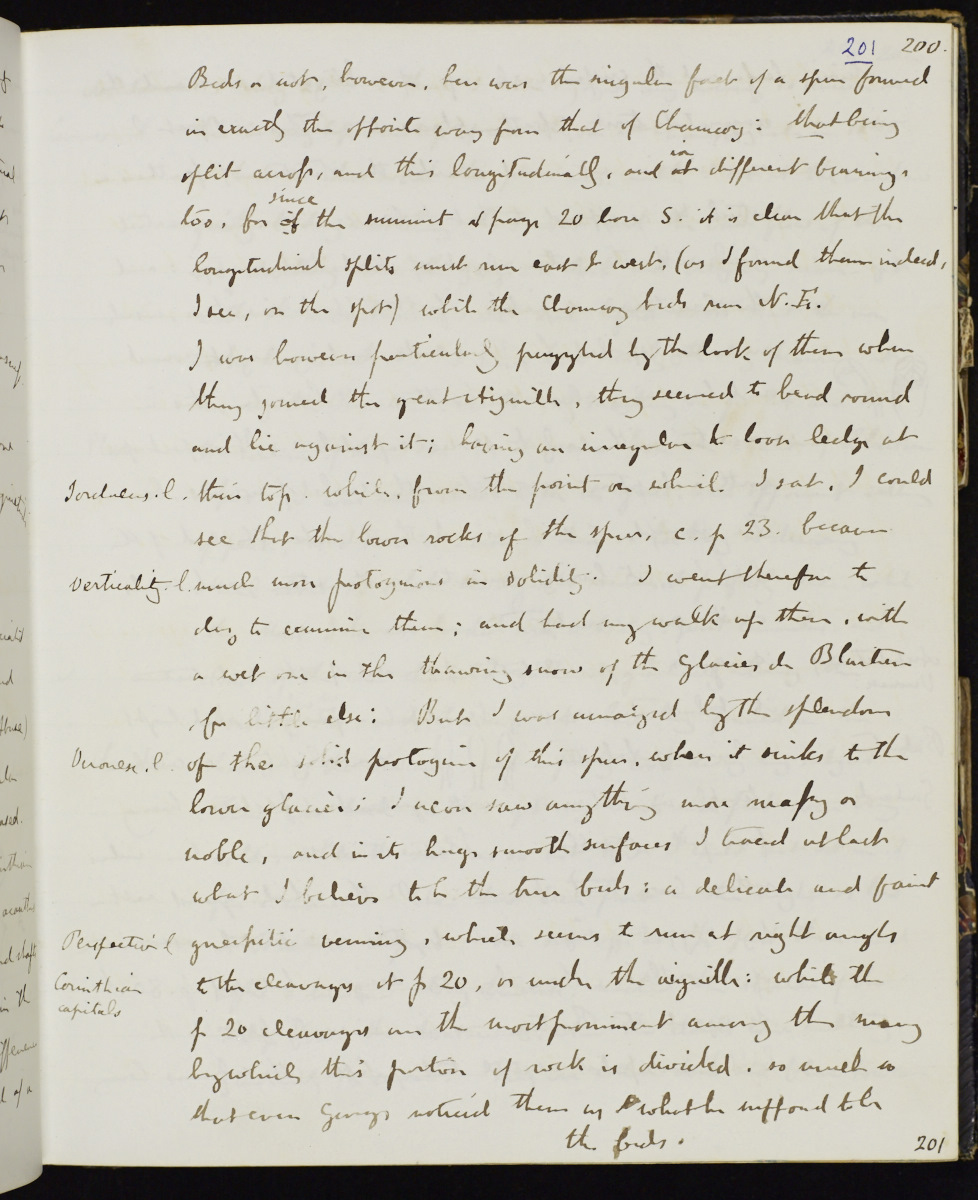 201 200.
Beds or not, however, here was the singular fact of a spur formed
in exactly the opposite way from that of Chamouny: that being
split across, and this longitudinally, and at in different bearings
too, for if since the summit at page 20 bore S. it is clear that the
longitudinal splits must run east & west, (as I found them indeed,
I see, on the spot) while the Chamouny beds run N.E.
I was however particularly puzzled by the look of them when
they joined the great Aiguille, they seemed to bend round
and lie against it; having an irregular & loose ledge at
their top. while, from the point on which I sat, I could
see that the lower rocks of the spur, c. p 23. became
Verticality. l. much more protoginous in solidity. I went therefore to
day to examine them; and had my walk up there, with
a wet one in the thawing snow of the Glacier de Blaitiere
for little else: But I was amazed by the splendour
of the solid protogine of this spur, when it sinks to the
lower glacier; I never saw anything more massy or
noble, and in its huge smooth surfaces I traced at last
what I believe to be the true beds: a delicate and faint
Perfection l gneissitic veining, which seems to run at right angles
Corinthian capitals
to the cleavages at p 20, or under the aiguille: while the
p 20 cleavages are the most prominent among the many
by which this portion of rock is divided. so much so
that even George noticed them as what he supposed to be
the beds.
201